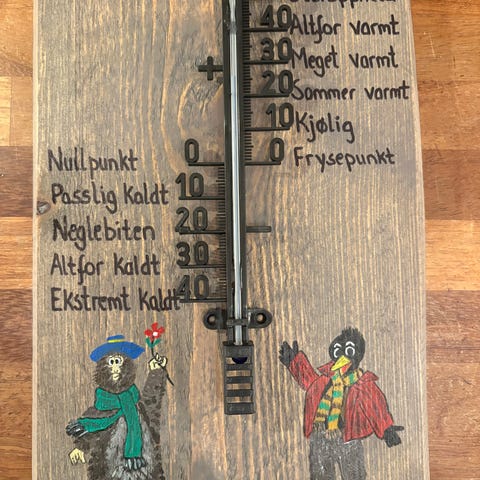 40 Altfor varmt
30 Meget varmt
+
20 Sommer varmt
10 Kjølig
0 Frysepunkt
Nullpunkt 0
Passlig Kaldt 10
Neglebiten 20
-
Altfor Kaldt 30
Ekstremt Kaldt 40